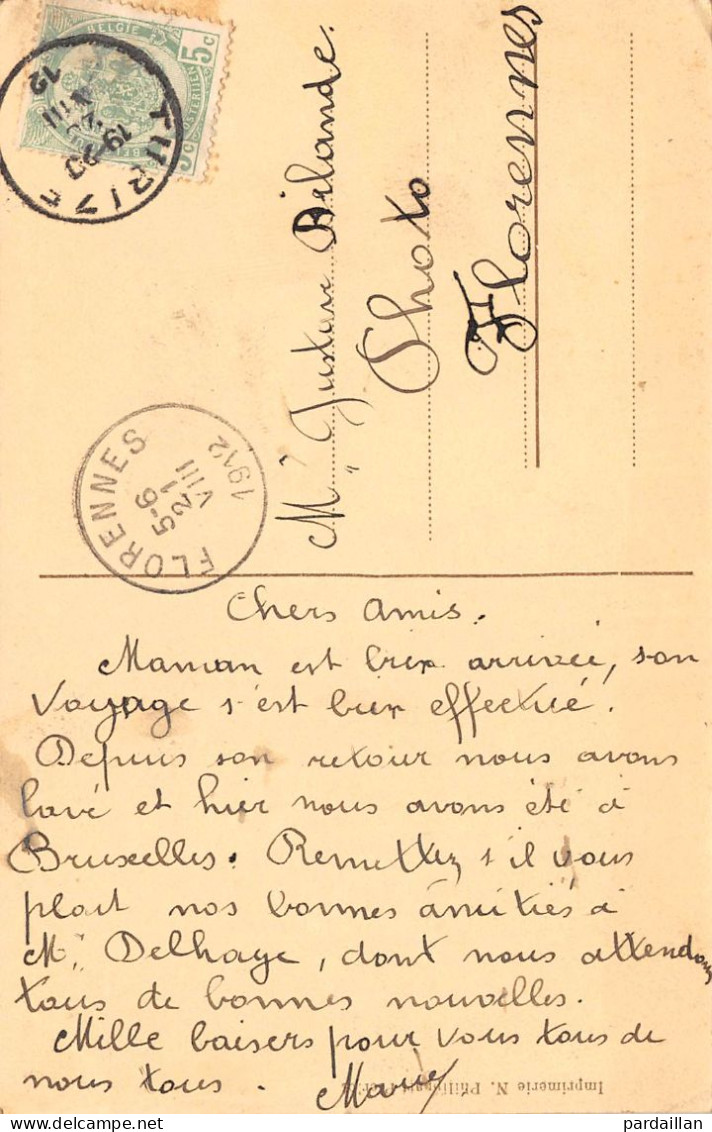 BELGIE 5c
19-20
VIII
12
FLORENNES
5-6
21
VIII
1912
Mr Gustave Dilande.
Photo
Florennes
Chers amis.
Maman est bien arrivée, son
voyage s'est bien effectué.
Depuis son retour nous avons
lavé et hier nous avons été à
Bruxelles. Remettez s'il vous
plait nos bonnes amitiés à
Mr Delhaye, dont nous attendons
tous de bonnes nouvelles.
Mille baisers pour vous tous de
nous tous. Marie
Imprimerie N.
pardaillan